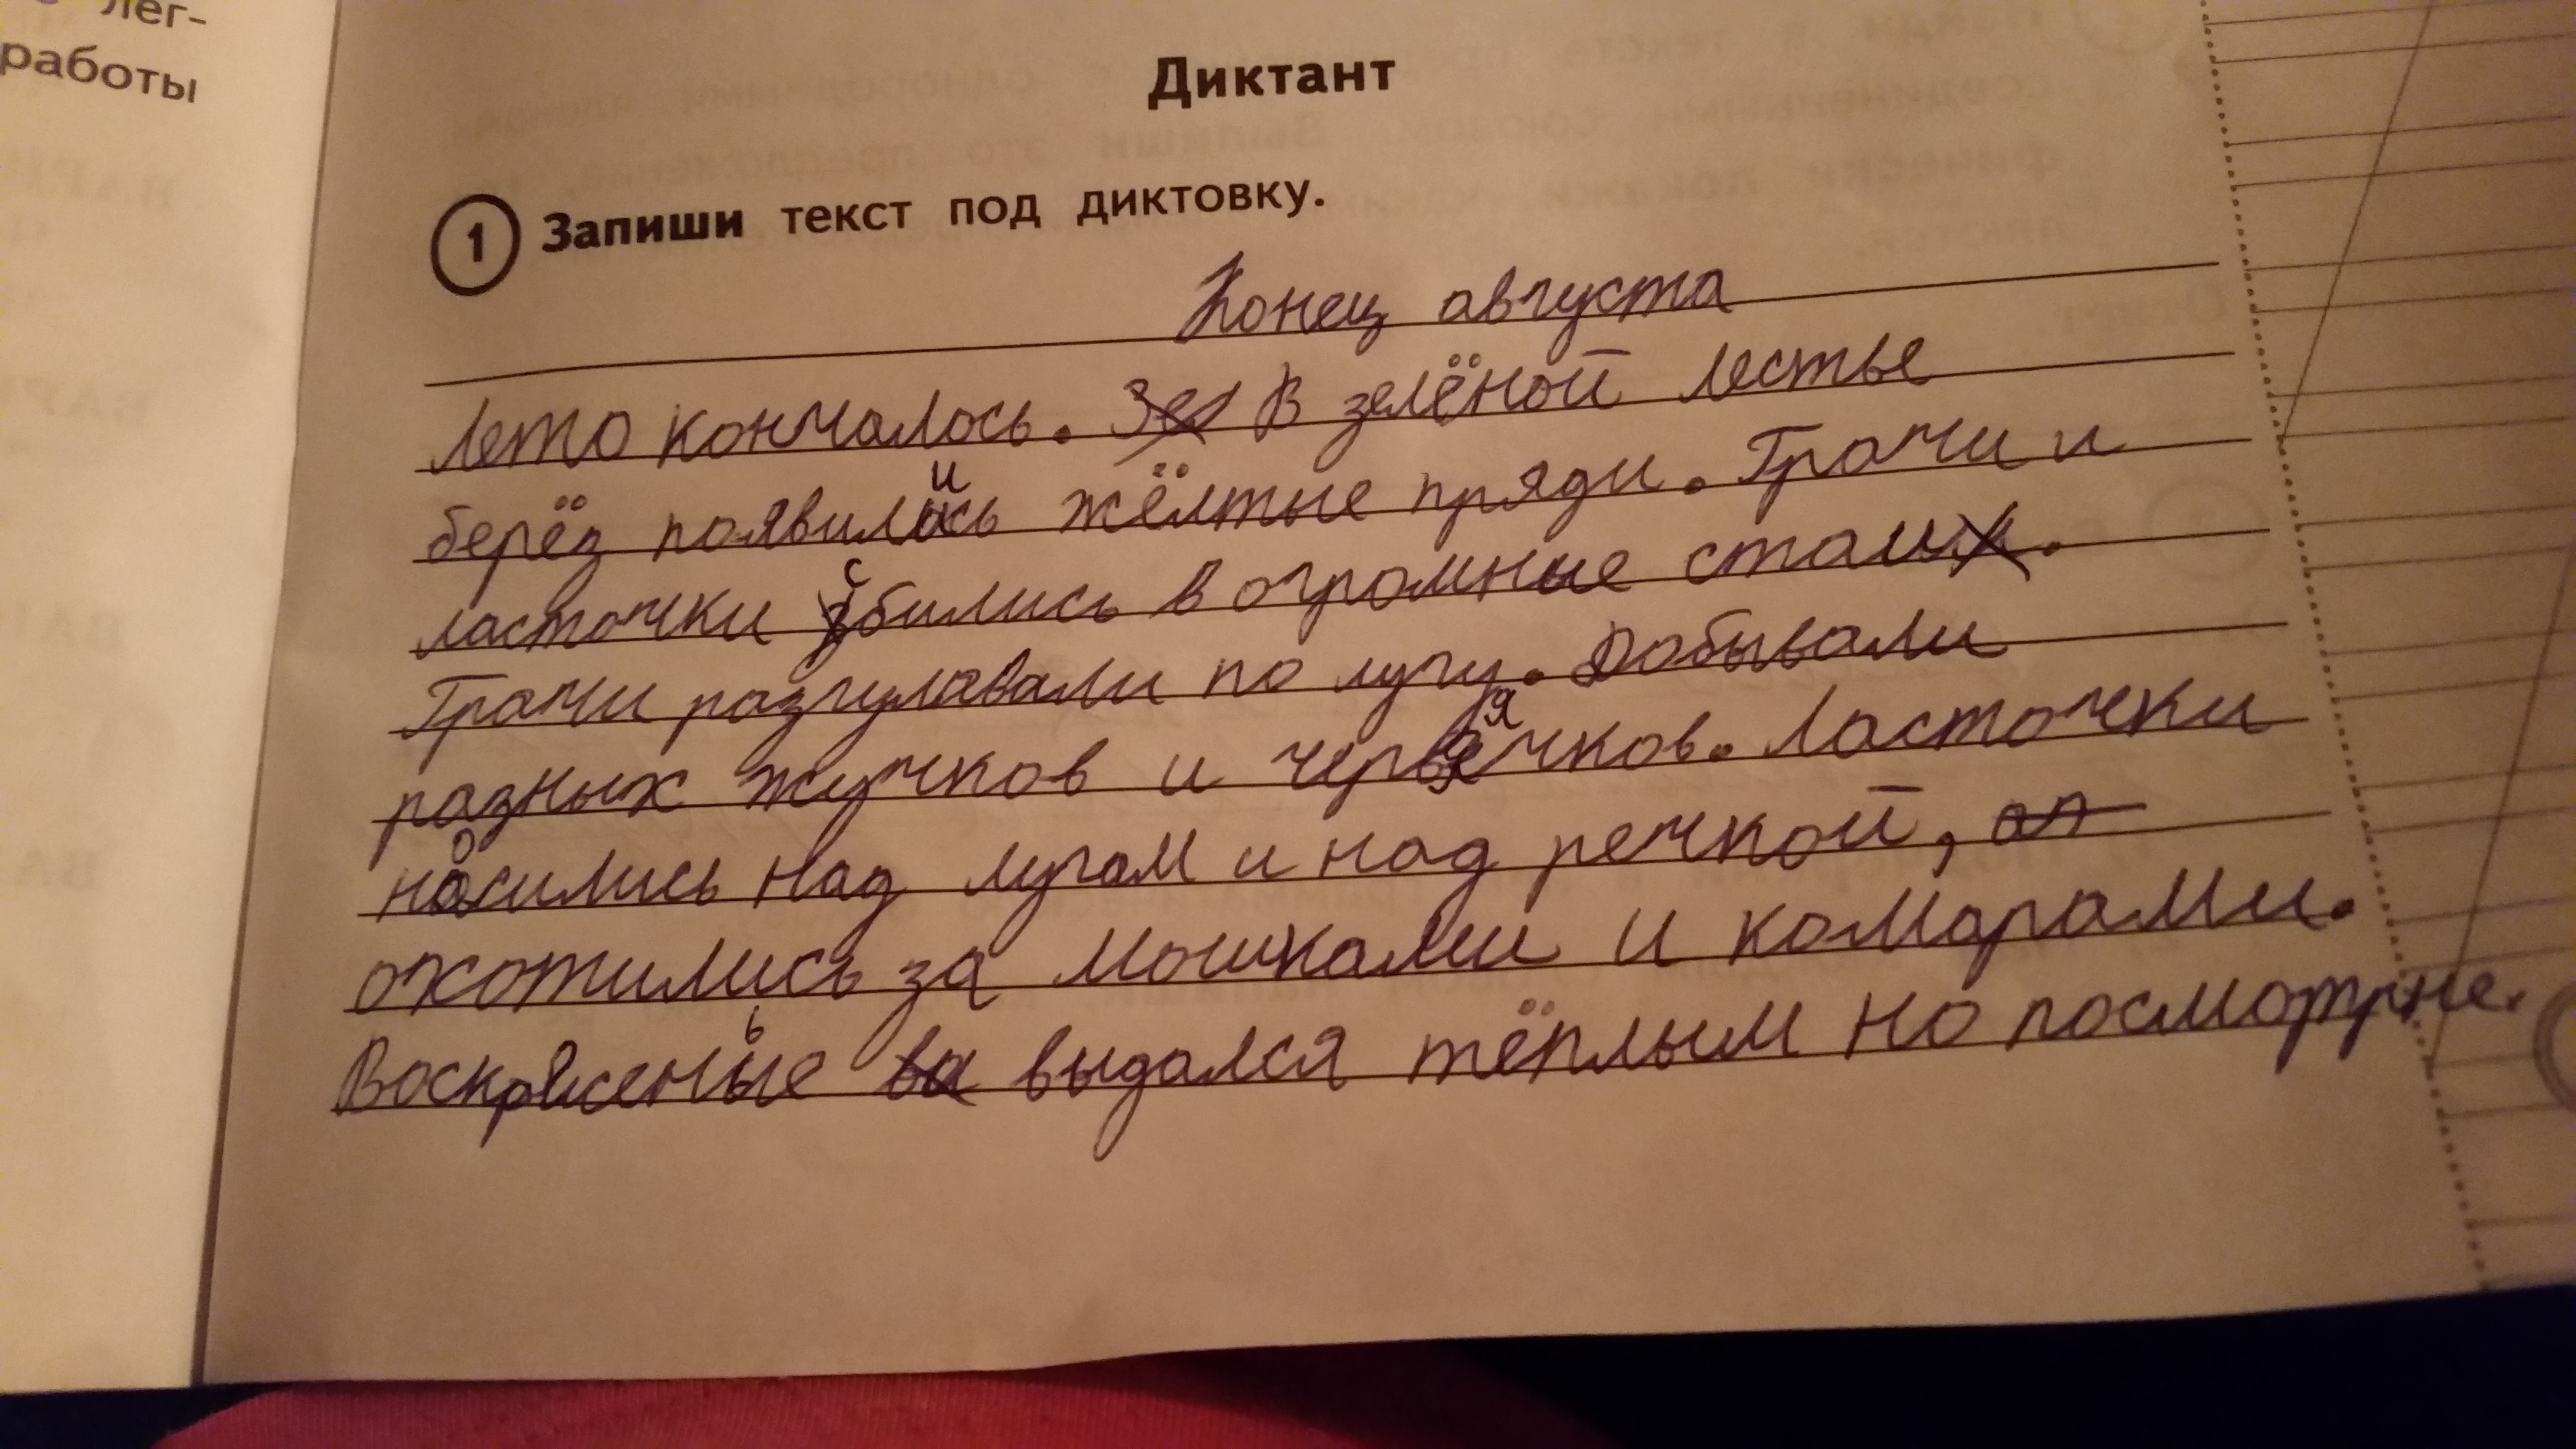 лег-
работы
Диктант
1 Запиши текст под диктовку.
Конец августа
Лето кончалось. В зелёной лестье
берёз появились жёлтые пряди. Грачи и
ласточки сбились в огромные стаи.
Грачи разгулавали по лугу. Добывали
разных жучков и червячков. Ласточки
носились над лугом и над речкой,
охотились за мошками и комарами.
Воскрясенье выдался тёплым но посмотрне.